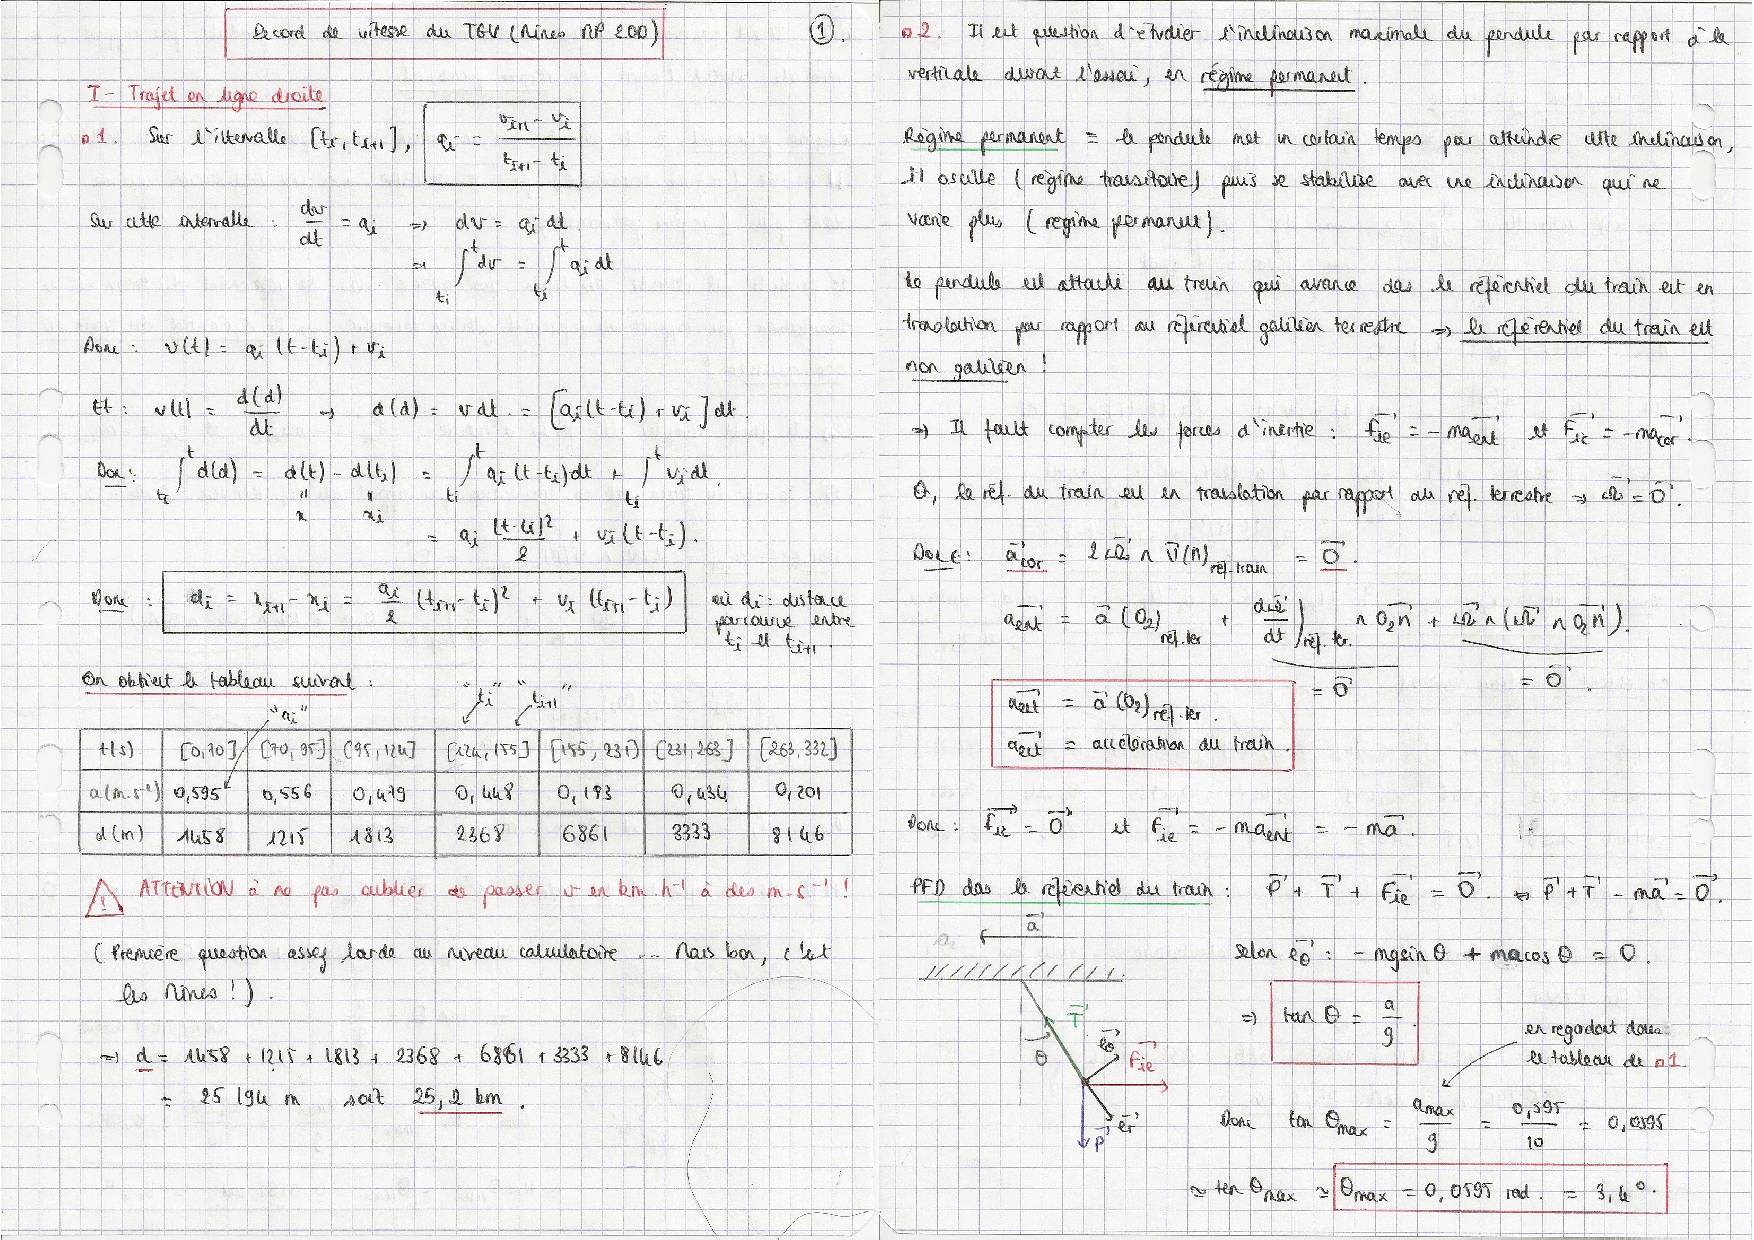 Record de vitesse du TGV (Mines MP 200)
①.
I - Trajet en ligne droite
□ 1. Sur l'intervalle [ti, ti+1], ai = (vi+1 - vi) / (ti+1 - ti)
Sur cette intervalle : dv/dt = ai ⇒ dv = ai dt
⇒ ∫_ti^t dv = ∫_ti^t ai dt
Donc : v(t) = ai (t-ti) + vi
Et : v(t) = d(d)/dt → d(d) = v dt = [ai(t-ti) + vi] dt.
Donc : ∫_ti^t d(d) = d(t) - d(ti) = ∫_ti^t ai (t-ti) dt + ∫_ti^t vi dt.
" "
x xi
= ai (t-ti)²/2 + vi (t-ti).
Donc : di = xi+1 - xi = ai/2 (ti+1 - ti)² + vi (ti+1 - ti)
où di : distance
parcourue entre
ti et ti+1.
On obtient le tableau suivant :
"ai" "ti" "ti+1"
t(s) [0,70] [70,95] [95,124] [124,155] [155,231] [231,263] [263,332]
a(m.s⁻²) 0,595 0,556 0,479 0,448 0,193 0,434 0,201
d(m) 1458 1215 1813 2368 6861 3333 8146
⚠ ATTENTION à ne pas oublier de passer v en km.h⁻¹ à des m.s⁻¹ !
(Première question assez lourde au niveau calculatoire ... Mais bon, c'est
les Mines !).
⇒ d = 1458 + 1215 + 1813 + 2368 + 6861 + 3333 + 8146
= 25 194 m soit 25,2 km.
□ 2. Il est question d'étudier l'inclinaison maximale du pendule par rapport à la
verticale durant l'essai, en régime permanent.
Régime permanent = le pendule met un certain temps par atteindre cette inclinaison,
il oscille (régime transitoire) puis se stabilise avec une inclinaison qui ne
varie plus (régime permanent).
Le pendule est attaché au train qui avance donc le référentiel du train est en
translation par rapport au référentiel galiléen terrestre ⇒ le référentiel du train est
non galiléen !
⇒ Il fault compter les forces d'inertie : Fie = -m aent et Fic = -m acor.
Or, le réf. du train est en translation par rapport au réf. terrestre ⇒ Ω = 0.
Donc : acor = 2Ω ∧ V(M) réf. train = 0.
aent = a(O2) réf. ter + dΩ/dt) réf. ter. ∧ O2M + Ω ∧ (Ω ∧ O2M).
= 0 = 0.
aent = a(O2) réf. ter.
aent = accélération du train.
Donc : Fic = 0 et Fie = -m aent = -m a.
PFD dans le référentiel du train : P + T + Fie = 0. ⇔ P + T - m a = 0.
a
Selon eθ : -mg sin θ + ma cos θ = 0.
T
θ
eθ
Fie
er
P
⇒ tan θ = a/g.
en regardant dans
le tableau de □ 1.
Donc tan θmax = amax/g = 0,595/10 = 0,0595
≃ tan θmax ≃ θmax = 0,0595 rad. = 3,4°.